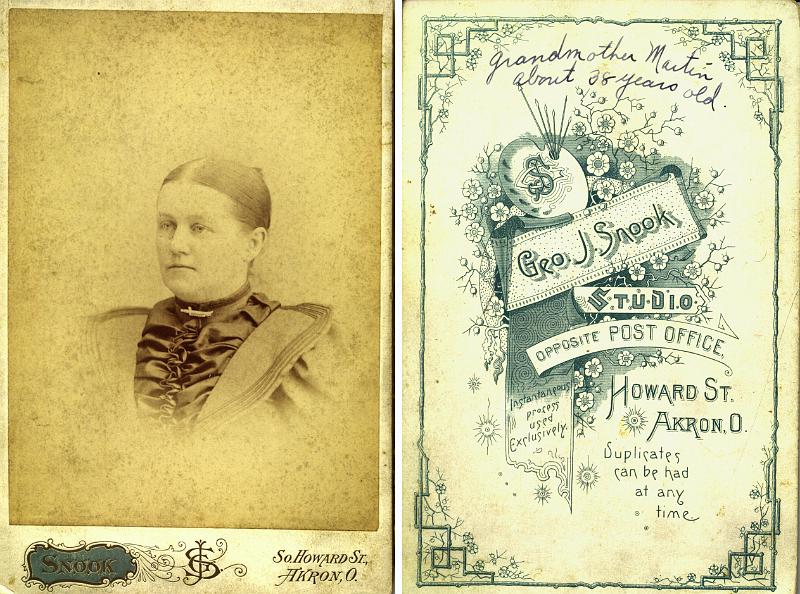 SNOOK
GJS
So. HOWARD ST.,
AKRON, O.
grandmother Martin
about 38 years old.
S
GEO. J. SNOOK
STUDIO
OPPOSITE POST OFFICE,
HOWARD ST.
AKRON, O.
Instantaneous
process
used
Exclusively.
Duplicates
can be had
at any
time